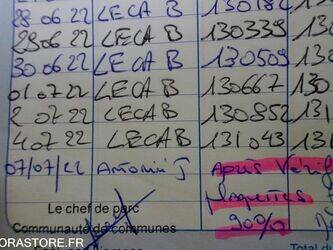 28 06 22 LECA B 130182
29 06 22 LECA B 130339 130
30 06 22 LECA B 130509 130
01 07 22 LECA B 130667 130
2 07 22 LECA B 130852 130
4 07 22 LECA B 131043 130
07/07/22 Antonini J Après Vérif
plaquettes
90%
Le chef de parc
Communauté de communes
Total du
ORASTORE.FR